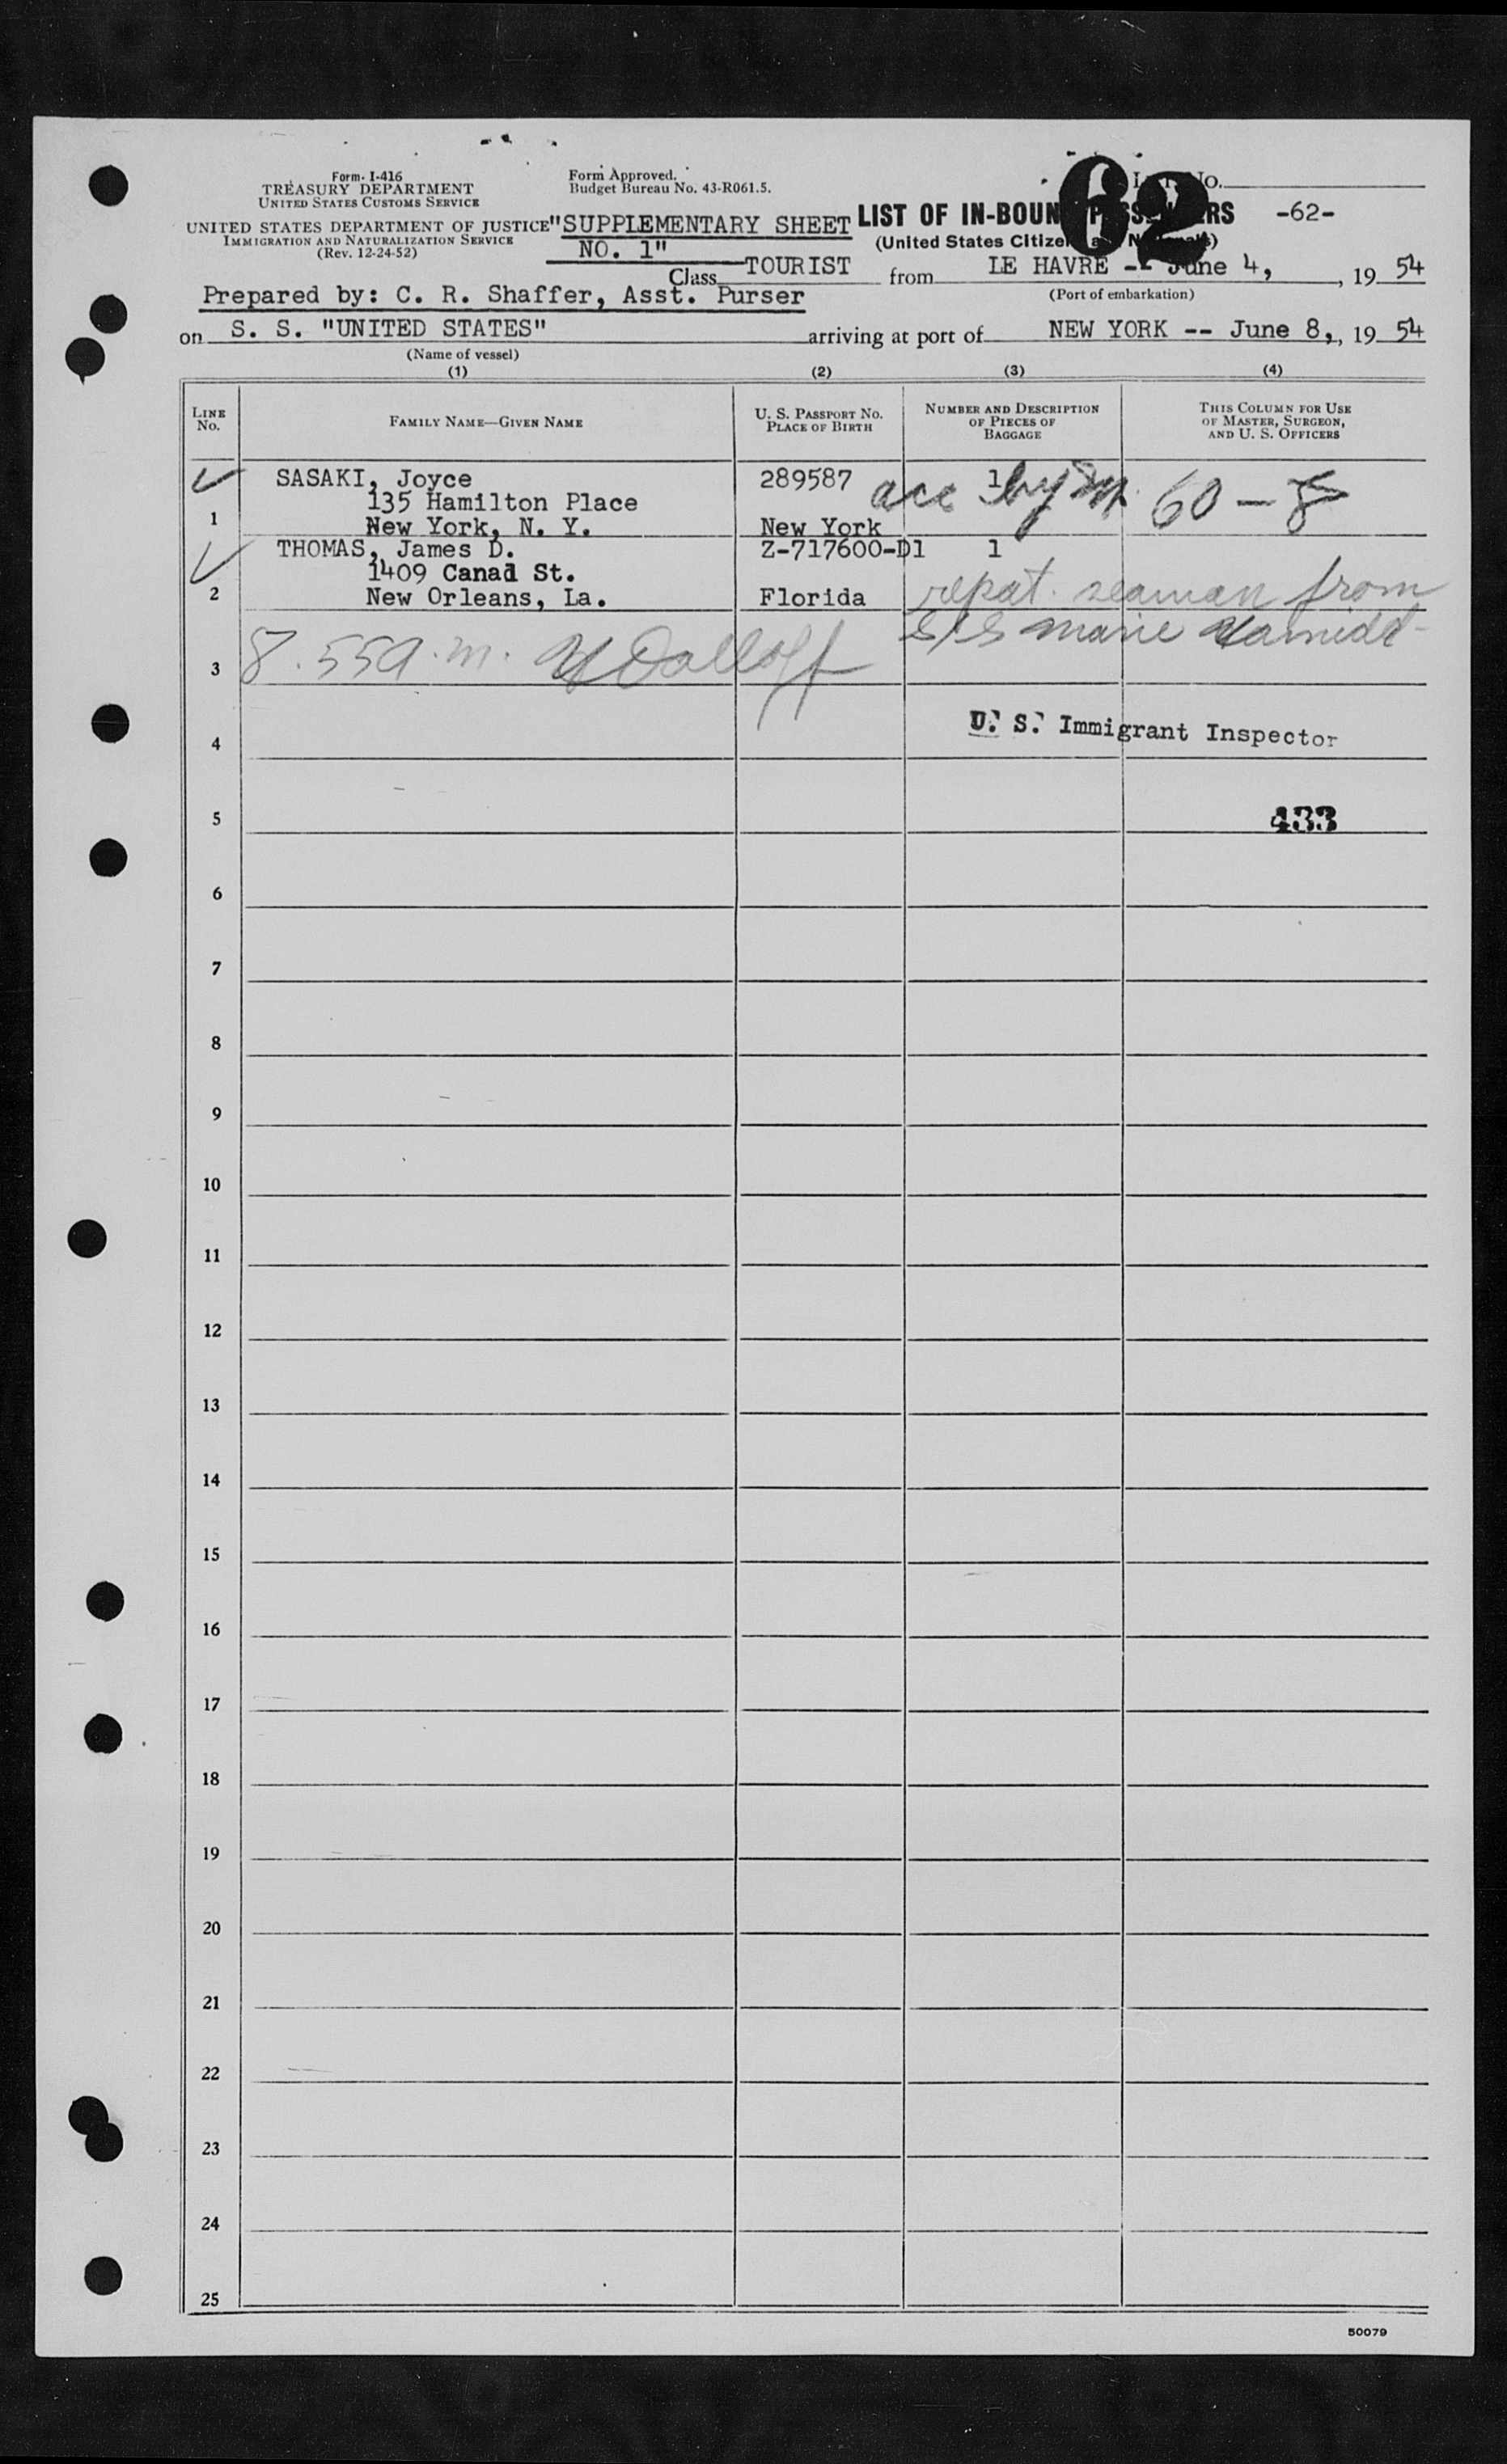 Form I-416
TREASURY DEPARTMENT
UNITED STATES CUSTOMS SERVICE
Form Approved.
Budget Bureau No. 43-R061.5.
62
No.
UNITED STATES DEPARTMENT OF JUSTICE
IMMIGRATION AND NATURALIZATION SERVICE
(Rev. 12-24-52)
"SUPPLEMENTARY SHEET
NO. 1"
LIST OF IN-BOUND PASSENGERS -62-
(United States Citizens and Nationals)
Class TOURIST from LE HAVRE -- June 4, , 19 54
(Port of embarkation)
Prepared by: C. R. Shaffer, Asst. Purser
on S. S. "UNITED STATES" arriving at port of NEW YORK -- June 8, , 19 54
(Name of vessel)
(1) (2) (3) (4)
LINE No. FAMILY NAME—GIVEN NAME U. S. PASSPORT NO. PLACE OF BIRTH NUMBER AND DESCRIPTION OF PIECES OF BAGGAGE THIS COLUMN FOR USE OF MASTER, SURGEON, AND U. S. OFFICERS
SASAKI, Joyce 289587 1 60-8
135 Hamilton Place
1 New York, N. Y. New York
THOMAS, James D. Z-717600-D1 1
1409 Canad St.
2 New Orleans, La. Florida repat. seaman from
S/S Marie
3 8.55 a.m.
4 U. S. Immigrant Inspector
5 433
6
7
8
9
10
11
12
13
14
15
16
17
18
19
20
21
22
23
24
25
50079